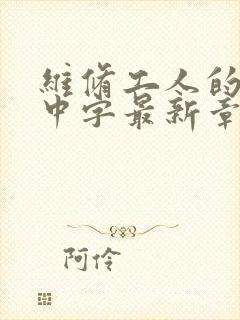 維脩工人的
中字最新章
阿伶